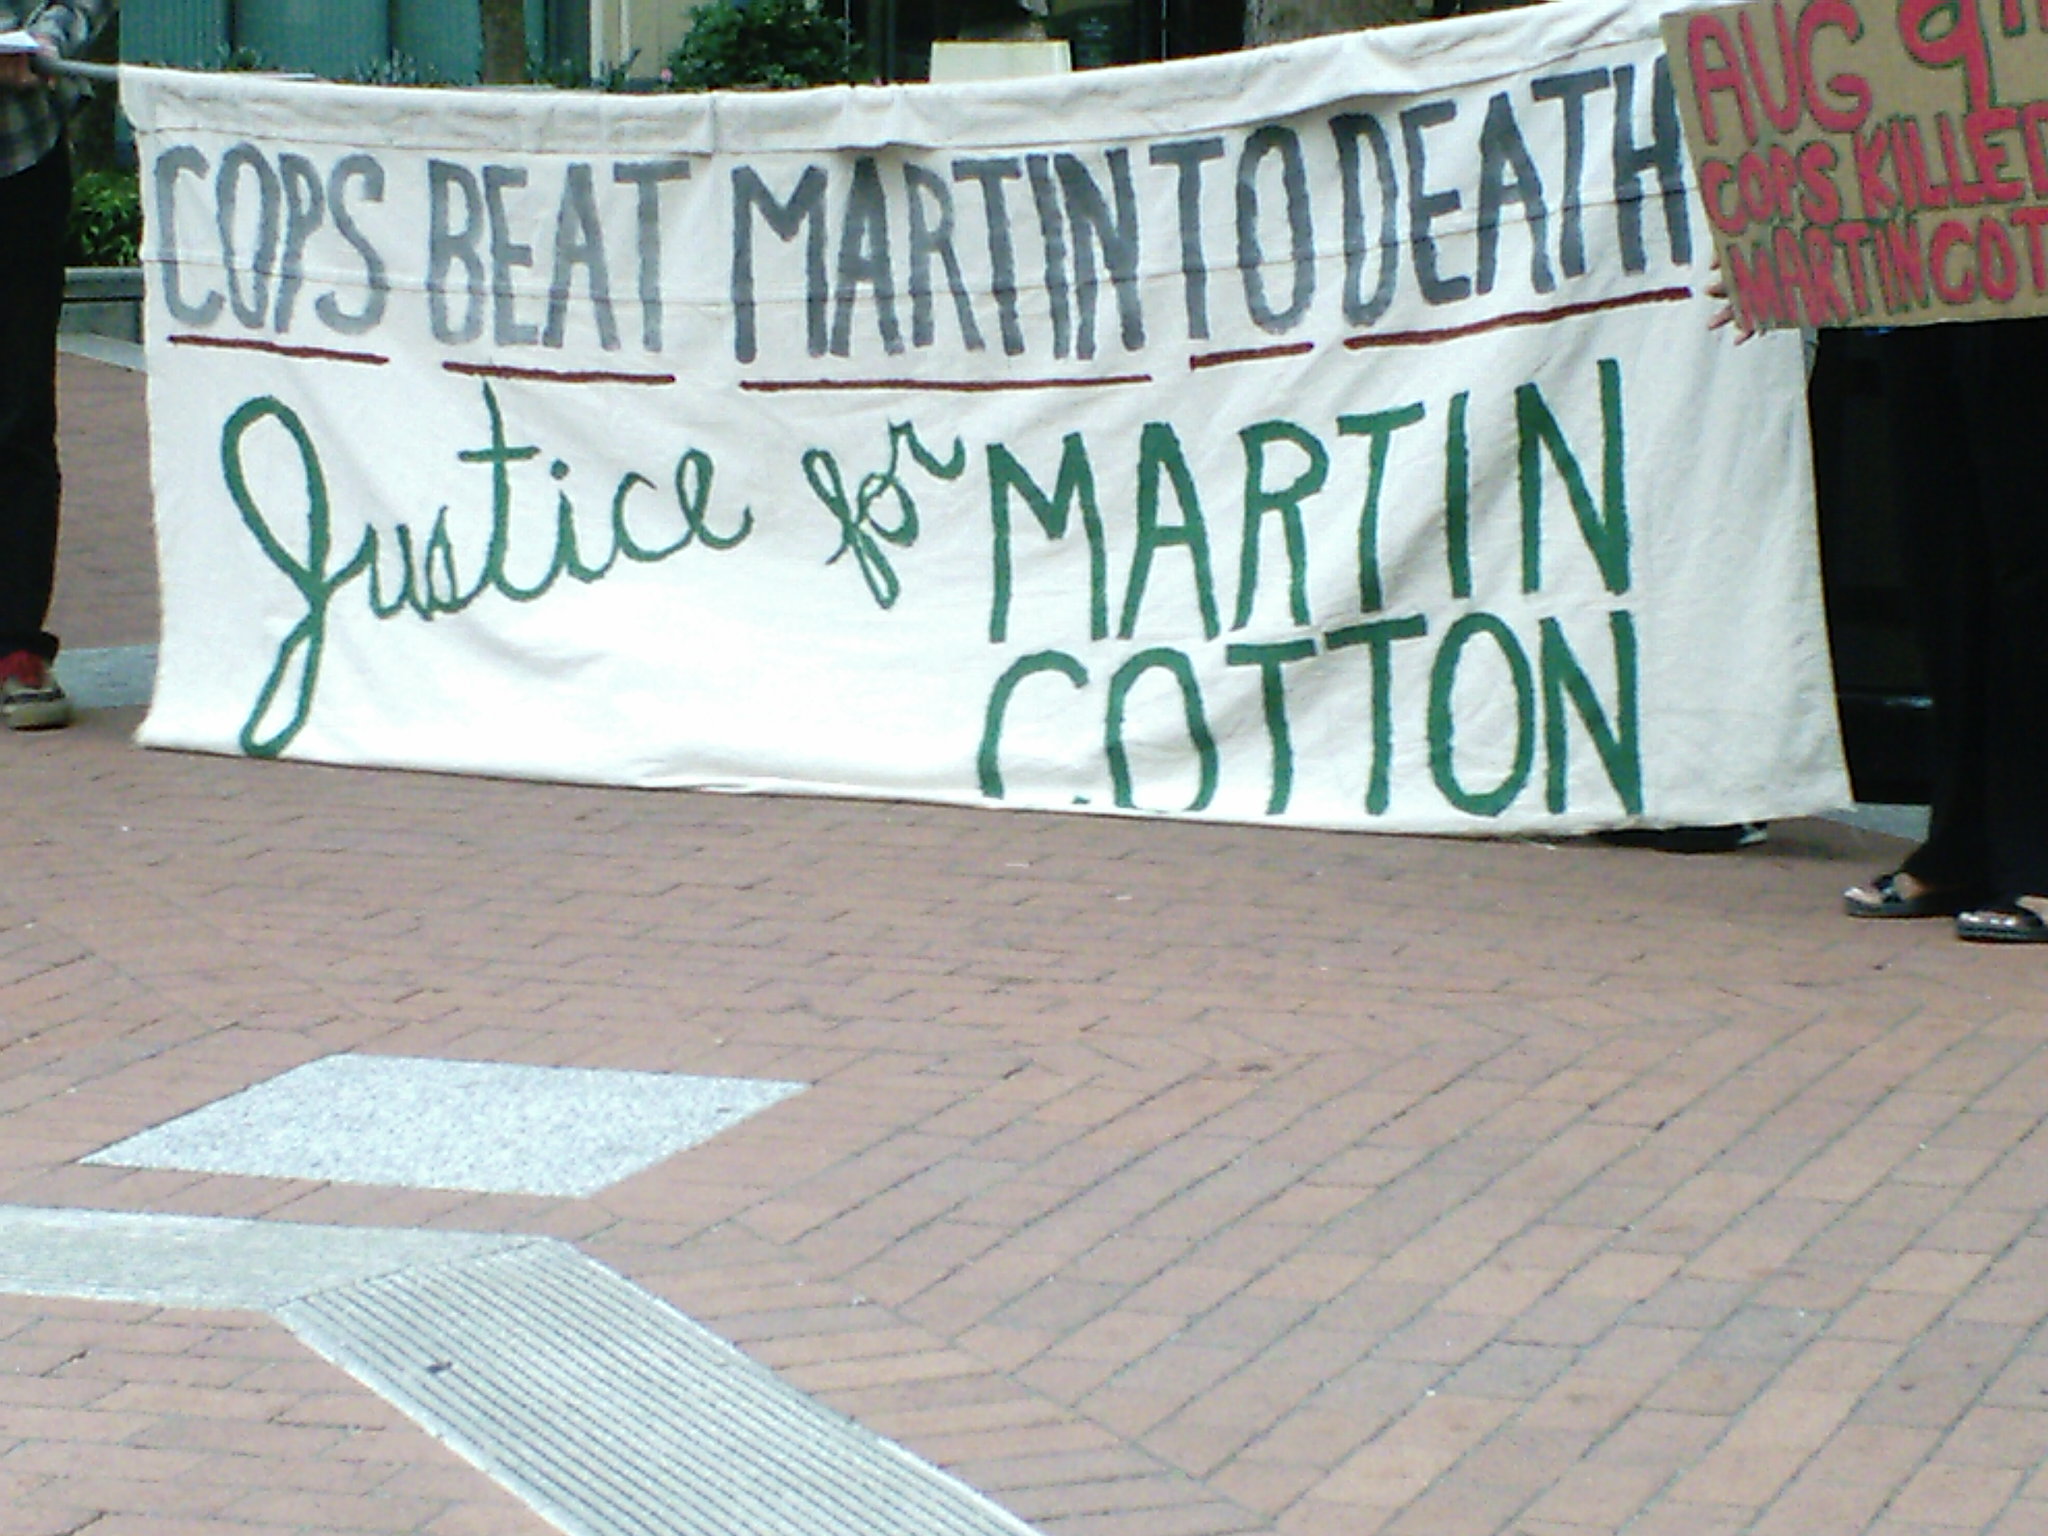 COPS BEAT MARTIN TO DEATH
Justice for MARTIN
COTTON
AUG 9TH
COPS KILLED
MARTIN COT